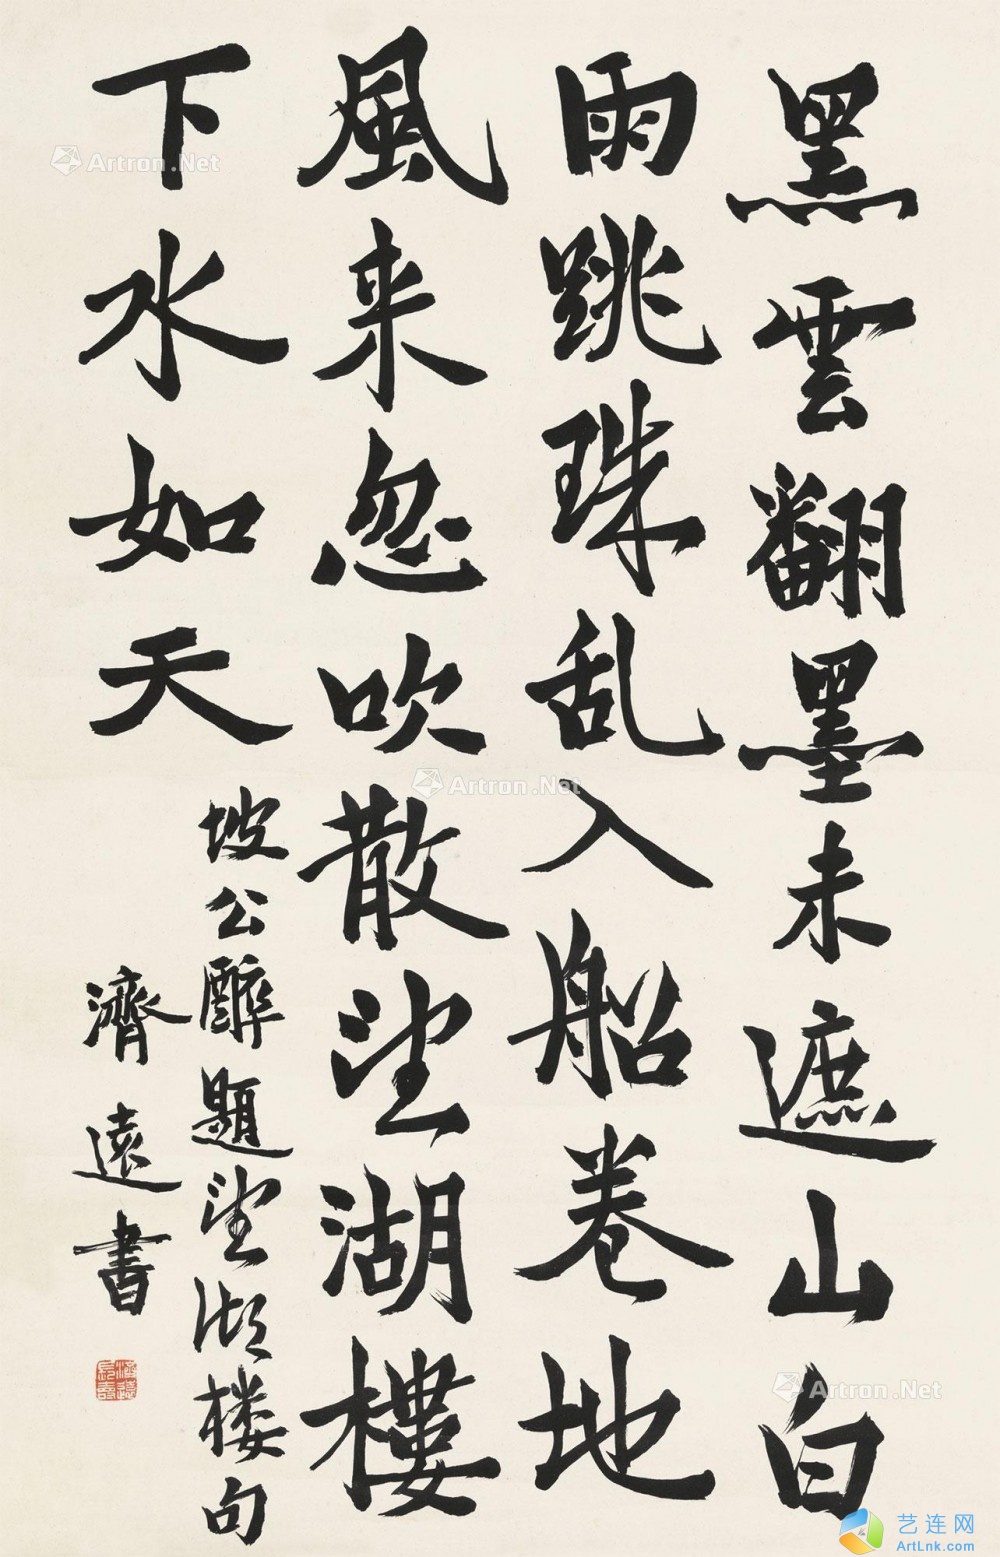 黑雲翻墨未遮山白
雨跳珠乱入船卷地
風来忽吹散望湖樓
下水如天
坡公醉題望湖楼句
濟遠書
Artron.Net
Artron.Net
Artron.Net
艺连网
ArtLnk.com